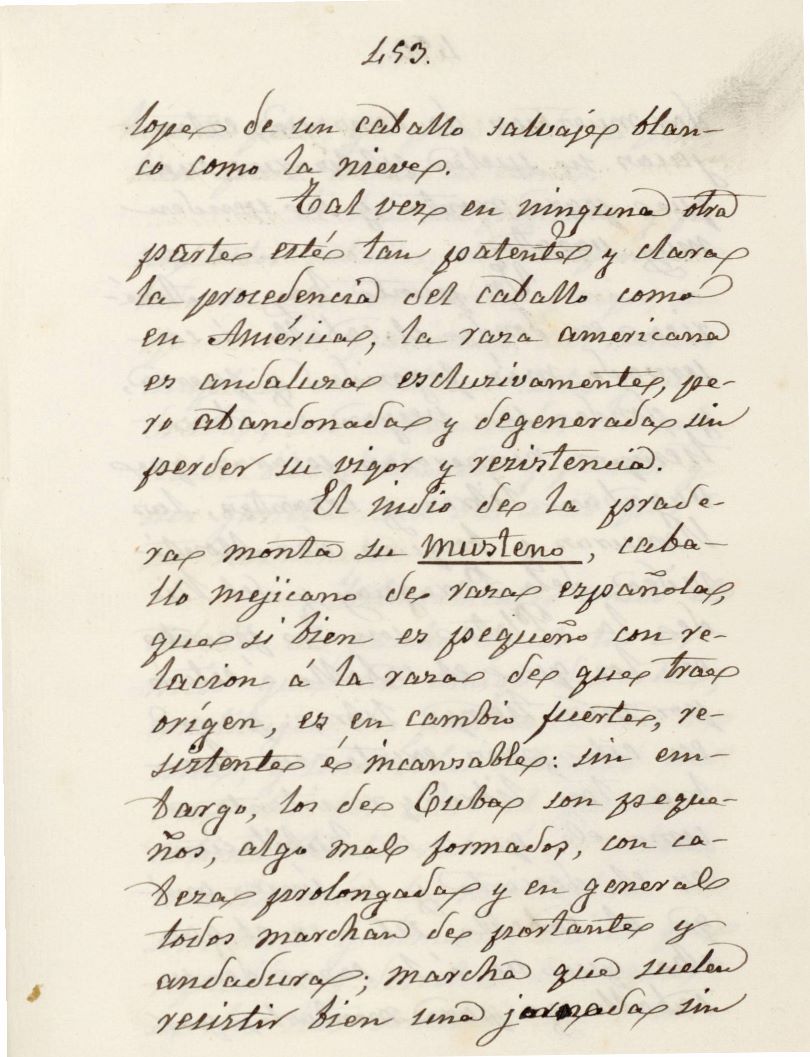 453.
lope de un caballo salvaje blan-
co como la nieve.
Tal vez en ninguna otra
parte esté tan patente y clara
la procedencia del caballo como
en América, la raza americana
es andaluza esclusivamente, pe-
ro abandonada y degenerada sin
perder su vigor y resistencia.
El indio de la prade-
ra monta su musteno, caba-
llo mejicano de raza española,
que si bien es pequeño con re-
lacion á la raza de que trae
orígen, es en cambio fuerte, re-
sistente é incansable: sin em-
bargo, los de Cuba son peque-
ños, algo mal formados, con ca-
beza prolongada y en general
todos marchan de portante y
andadura; marcha que suelen
resistir bien una jornada sin